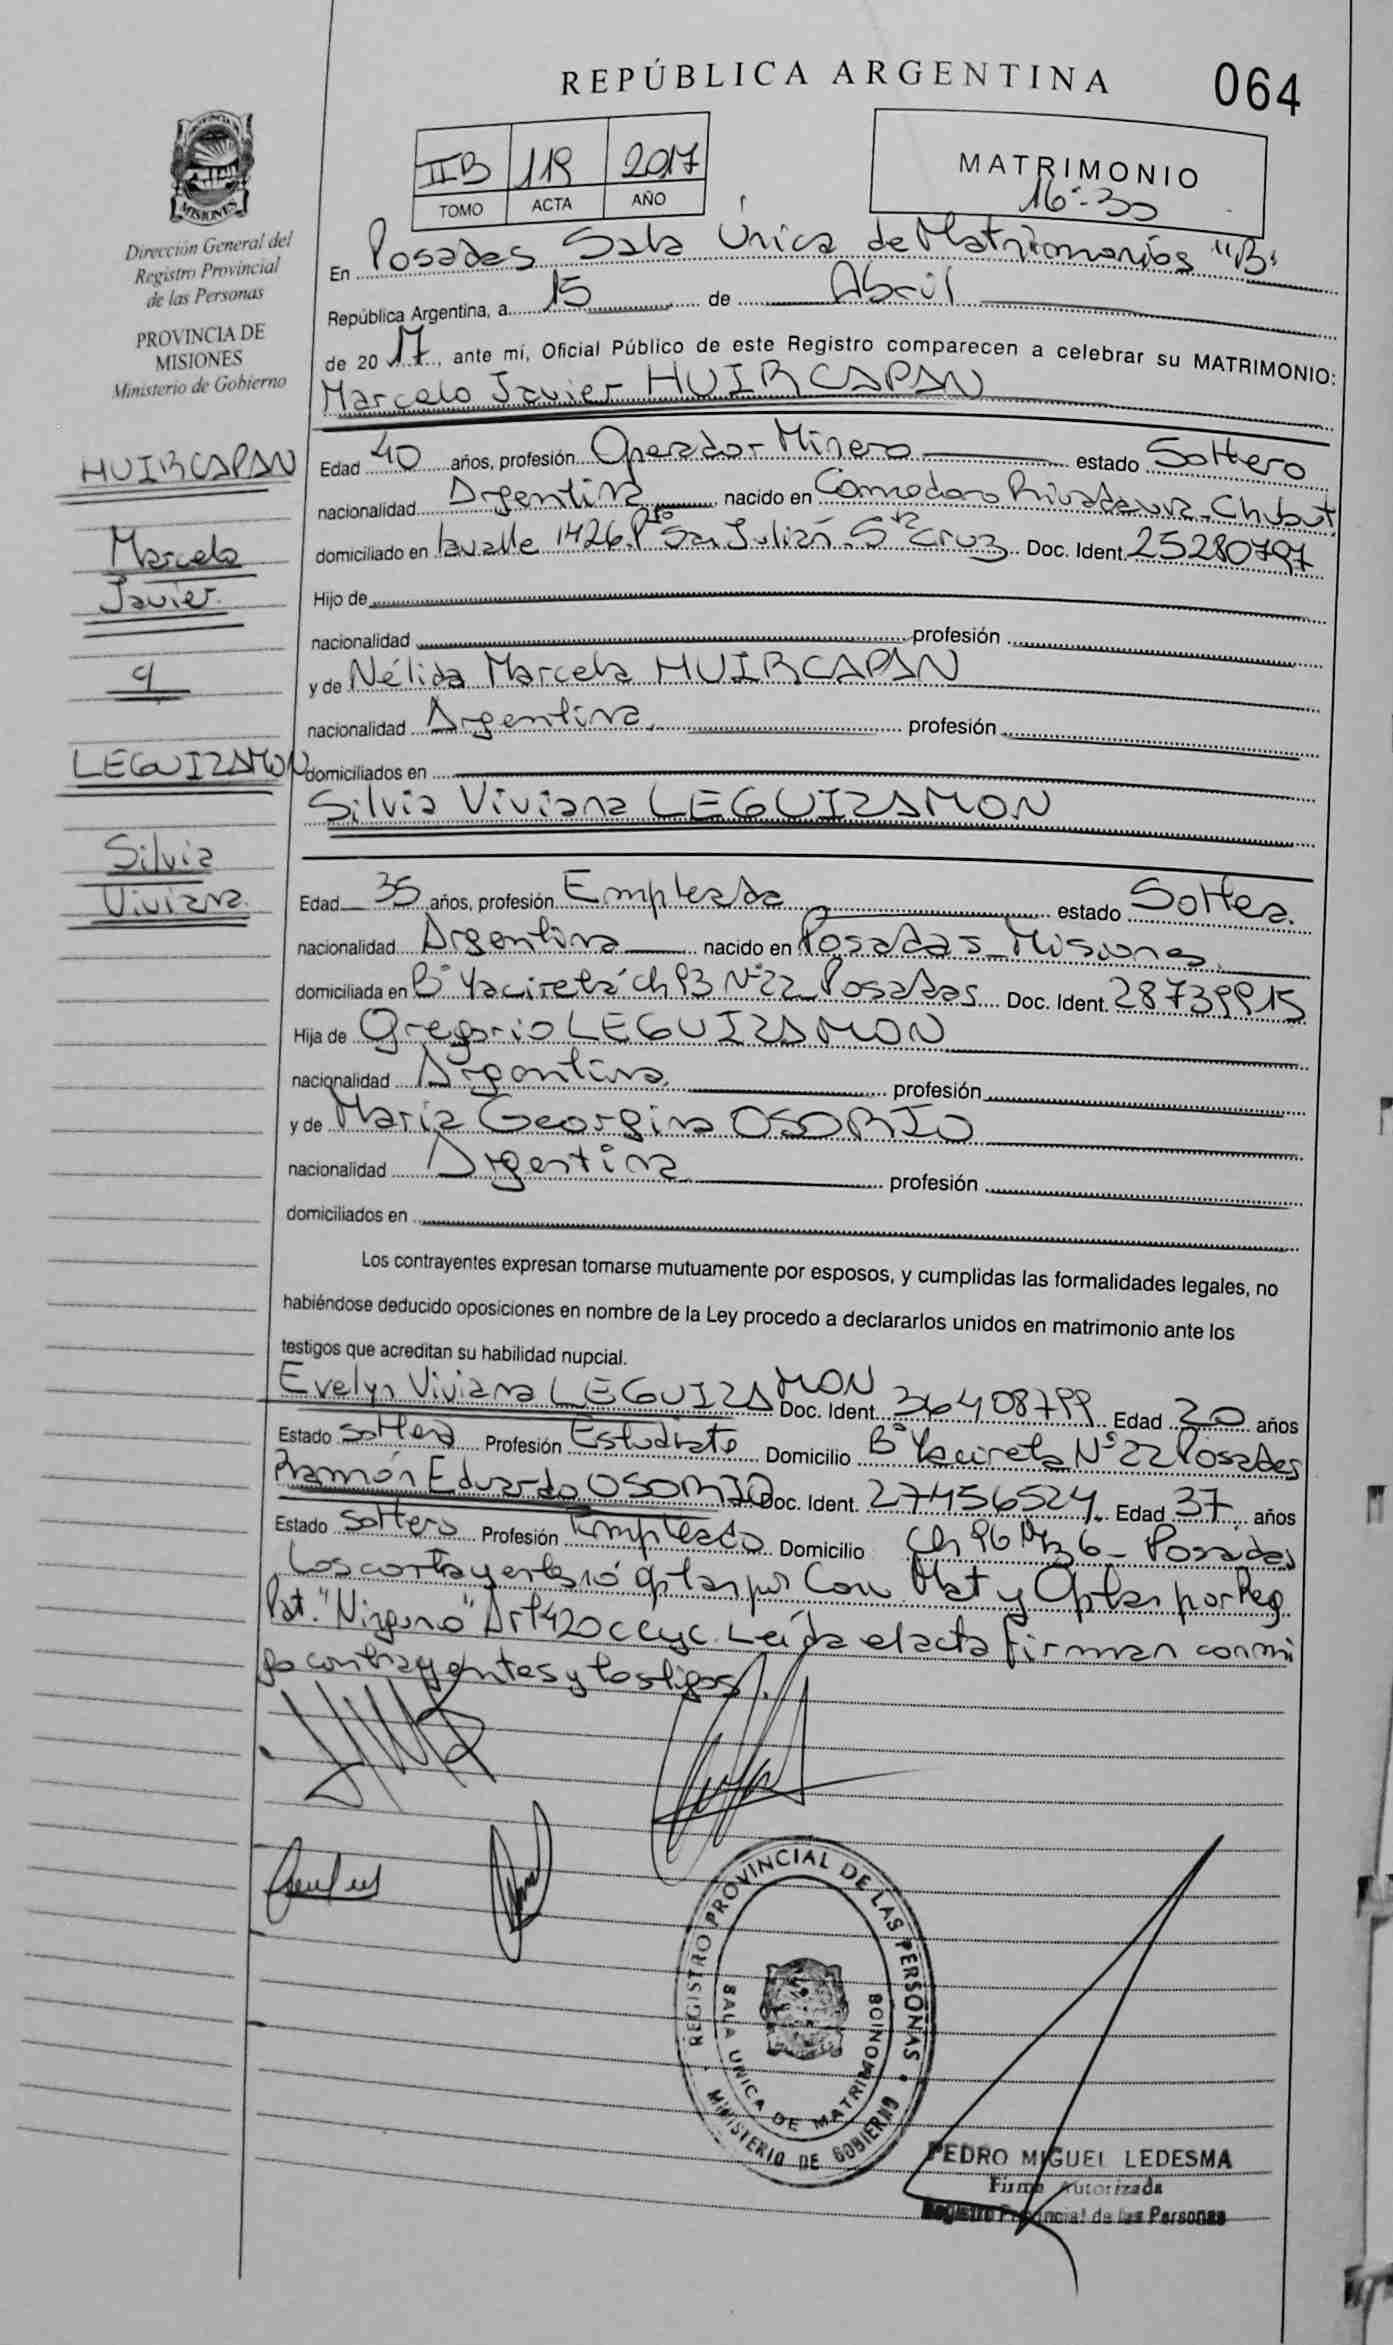 REPÚBLICA ARGENTINA
064
MISIONES
Dirección General del
Registro Provincial
de las Personas
PROVINCIA DE
MISIONES
Ministerio de Gobierno
IIB 119 2017
TOMO ACTA AÑO
MATRIMONIO
16:30
En Posadas Sala Única de Matrimonios "B"
República Argentina, a 15 de Abril
de 2017, ante mí, Oficial Público de este Registro comparecen a celebrar su MATRIMONIO:
Marcelo Javier HUIRCAPAN
HUIRCAPAN
Marcelo
Javier
y
LEGUIZAMON
Silvia
Viviana
Edad 40 años, profesión Operador Minero estado Soltero
nacionalidad Argentina nacido en Comodoro Rivadavia - Chubut
domiciliado en Lavalle 1426. Pto San Julián. Sta Cruz Doc. Ident. 25280797
Hijo de
nacionalidad profesión
y de Nélida Marcela HUIRCAPAN
nacionalidad Argentina profesión
domiciliados en
Silvia Viviana LEGUIZAMON
Edad 35 años, profesión Empleada estado Soltera
nacionalidad Argentina nacido en Posadas - Misiones
domiciliada en Bº Yacireta Ch 93 Nº 22 Posadas Doc. Ident. 28739915
Hija de Gregorio LEGUIZAMON
nacionalidad Argentina profesión
y de Maria Georgina OSORIO
nacionalidad Argentina profesión
domiciliados en
Los contrayentes expresan tomarse mutuamente por esposos, y cumplidas las formalidades legales, no
habiéndose deducido oposiciones en nombre de la Ley procedo a declararlos unidos en matrimonio ante los
testigos que acreditan su habilidad nupcial.
Evelyn Viviana LEGUIZAMON Doc. Ident. 36408799 Edad 20 años
Estado Soltera Profesión Estudiante Domicilio Bº Yacireta Nº 22 Posadas
Ramón Eduardo OSORIO Doc. Ident. 27456524 Edad 37 años
Estado Soltero Profesión Empleado Domicilio Ch 96 Mz 6 - Posadas
Los contrayentes no optan por Conv Mat y Optan por Reg
Pat. "Ninguno" Art 420 CCyC. Leída el acta firman conmi
go contrayentes y testigos.
REGISTRO PROVINCIAL DE LAS PERSONAS
SALA UNICA DE MATRIMONIOS
MINISTERIO DE GOBIERNO
PEDRO MIGUEL LEDESMA
Firma Autorizada
Registro Provincial de las Personas